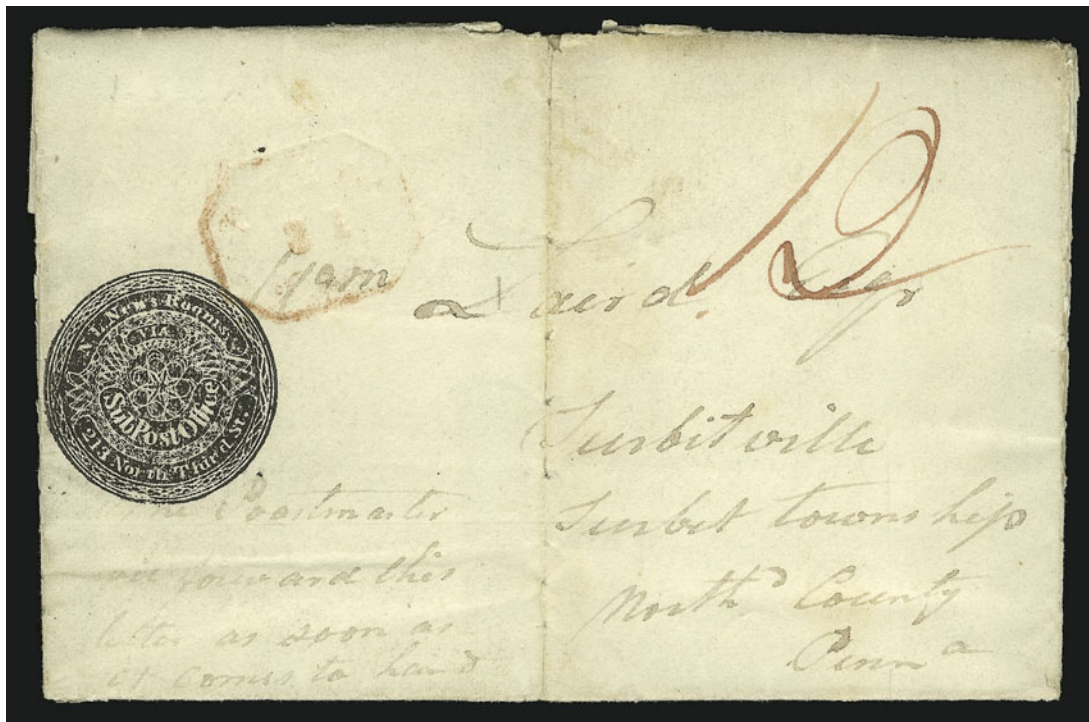 12
Laird. Esqr
Turbitville
Turbet township
Northd County
Penna
N. L. News Rooms
Sub Post Office
213 North Third St.
The Postmaster
will forward this
letter as soon as
it comes to hand